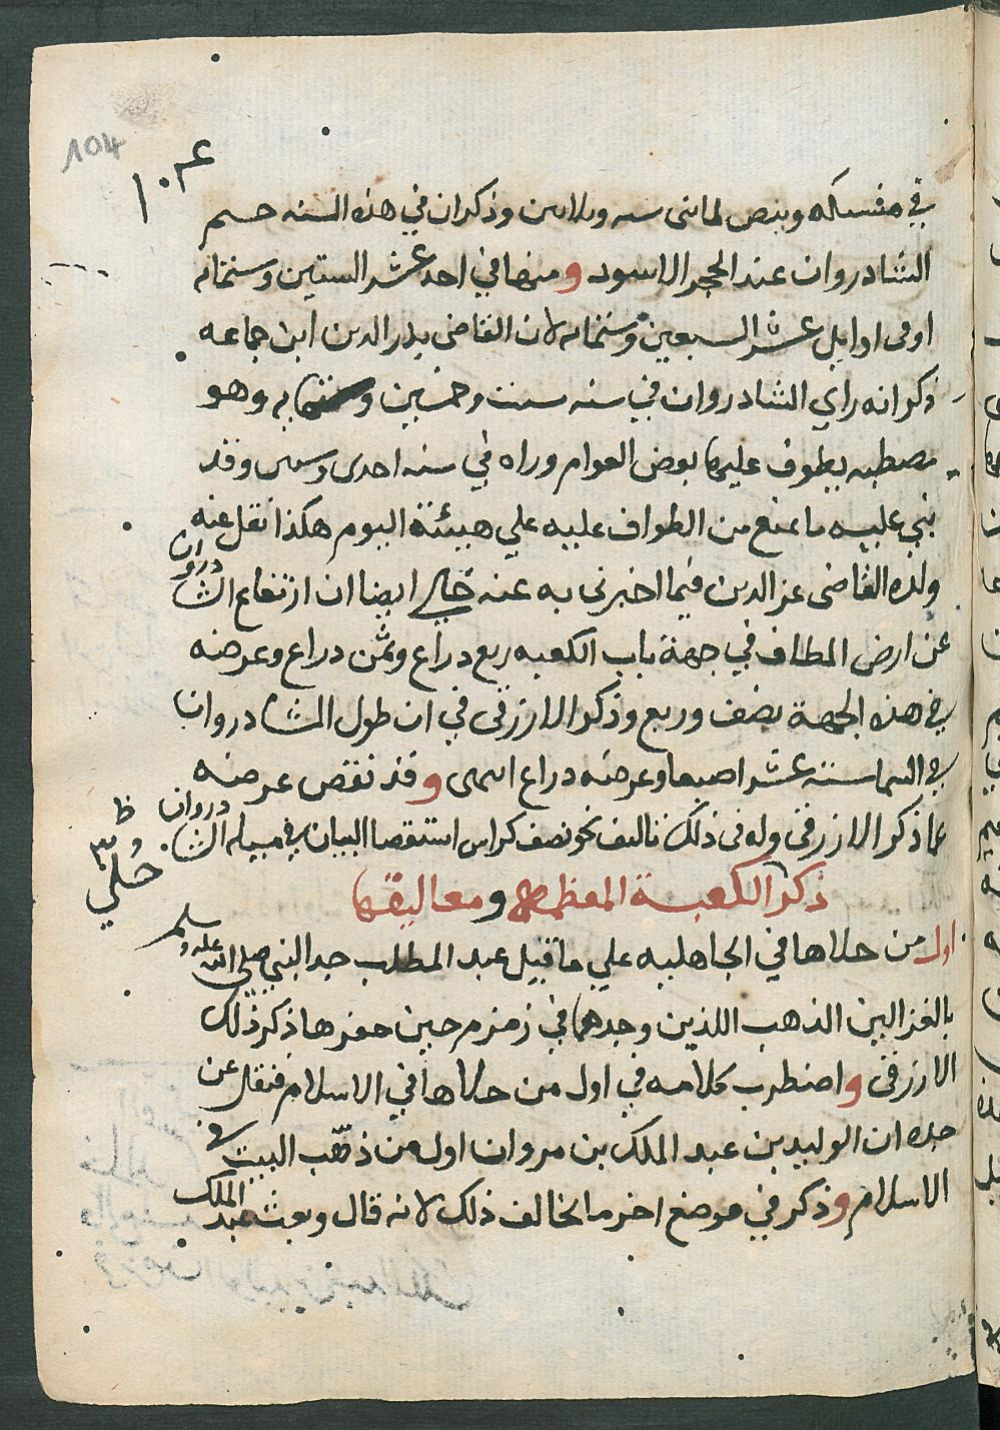 104
١٠٤
في منسكه وبنص لمايتى سنه وثلاثين وذكر ان في هذه السنه حسم
الشادروان عند الحجر الاسود ومنها في احد عشر الستين وستمائه
او في اوايل عشر السبعين وستمائه لان القاضى بدر الدين ابن جماعه
ذكر انه راي الشادروان في سنه ست وخمسين وستمايه وهو
مصطبه يطوف عليها بعض العوام وراه في سنه احدى وستين وقد
بني عليه ما يمنع من الطواف عليه علي هيئته اليوم هكذا نقل عنه
ولده القاضى عز الدين فيما اخبرنى به عنه خالي ايضا ان ارتفاع الشادروان
عن ارض المطاف في جهة باب الكعبه ربع دراع وثمن دراع وعرضه
في هذه الجهة نصف وربع وذكر الازرقى في ان طول الشادروان
في السما ستة عشر اصبعا وعرضه دراع انتهى وقد نقص عرضه
عما ذكر الازرقى وله فى ذلك تاليف نحو نصف كراس استقصا البيان في مسله الشادروان
ظ
حُلي
ذكر الكعبة المعظمة ومعاليقها
اول من حلاها في الجاهليه علي ما قيل عبد المطلب جد النبي صلى الله عليه وسلم
بالغزالين الذهب اللذين وجدهما في زمزم حين حفرها ذكر ذلك
الازرقى واضطرب كلامه في اول من حلاها في الاسلام فنقل عن
جده ان الوليد بن عبد الملك بن مروان اول من ذهّب البيت في
الاسلام وذكر في موضع اخر ما يخالف ذلك لانه قال وبعث عبد الملك